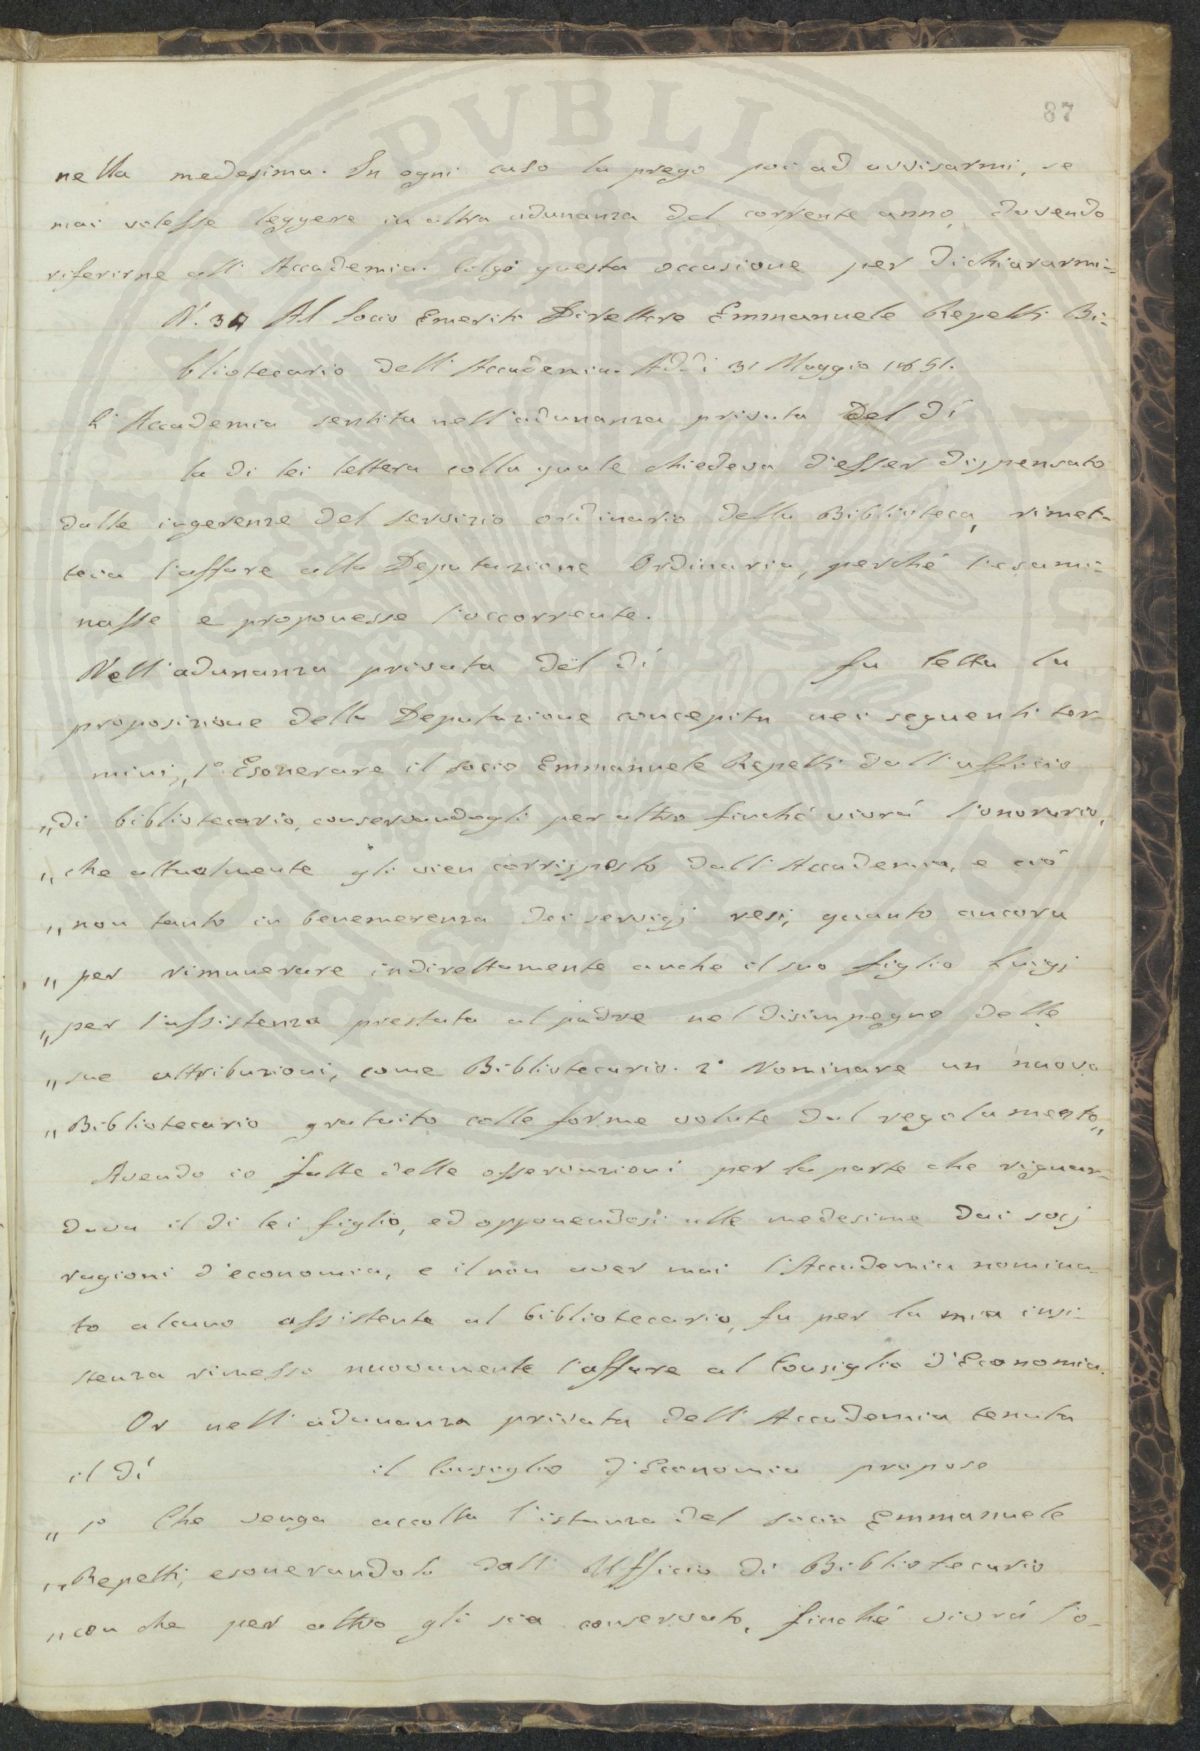 87
nella medesima. In ogni caso la prego poi ad avvisarmi, se
mai volesse leggere in altra adunanza del corrente anno, dovendo
riferirne all'Accademia. Colgo questa occasione per dichiararmi=
N.° 34 Al Socio Emerito Direttore Emmanuele Repetti Bi=
bliotecario dell'Accademia. Addì 31 Maggio 1851.
L'Accademia sentita nell'adunanza privata del dí
la di lei lettera colla quale chiedeva d'esser dispensato
dalle ingerenze del servizio ordinario della Biblioteca, rimet=
teva l'affare alla Deputazione Ordinaria, perché l'esami=
nasse e proponesse l'occorrente.
Nell'adunanza privata del dí fu letta la
proposizione della Deputazione concepita nei seguenti ter=
mini „1° Esonerare il socio Emmanuele Repetti dall'ufficio
„di bibliotecario, conservandogli per altro finché vivrá l'onorario,
„che attualmente gli vien corrisposto dall'Accademia, e ció
„non tanto in benemerenza dei servigj resi, quanto ancora
„per rimunerare indirettamente anche il suo figlio Luigj
„per l'assistenza prestata al padre nel disimpegno delle
„sue attribuzioni, come Bibliotecario. 2° Nominare un nuovo
„Bibliotecario gratuito colle forme volute dal regolamento„
Avendo io fatte delle osservazioni per la parte che riguar=
dava il di lei figlio, ed opponendosi alle medesime dai socj
ragioni d'economia, e il non aver mai l'Accademia nomina=
to alcuno assistente al bibliotecario, fu per la mia insi=
stenza rimesso nuovamente l'affare al Consiglio d'Economia.
Or nell'adunanza privata dell'Accademia tenuta
il dí il Consiglio d'Economia propose
„1° Che venga accolta l'istanza del socio Emmanuele
„Repetti, esonerandolo dall'Ufficio di Bibliotecario
„con che per altro gli sia conservato, finché vivrá l'o=